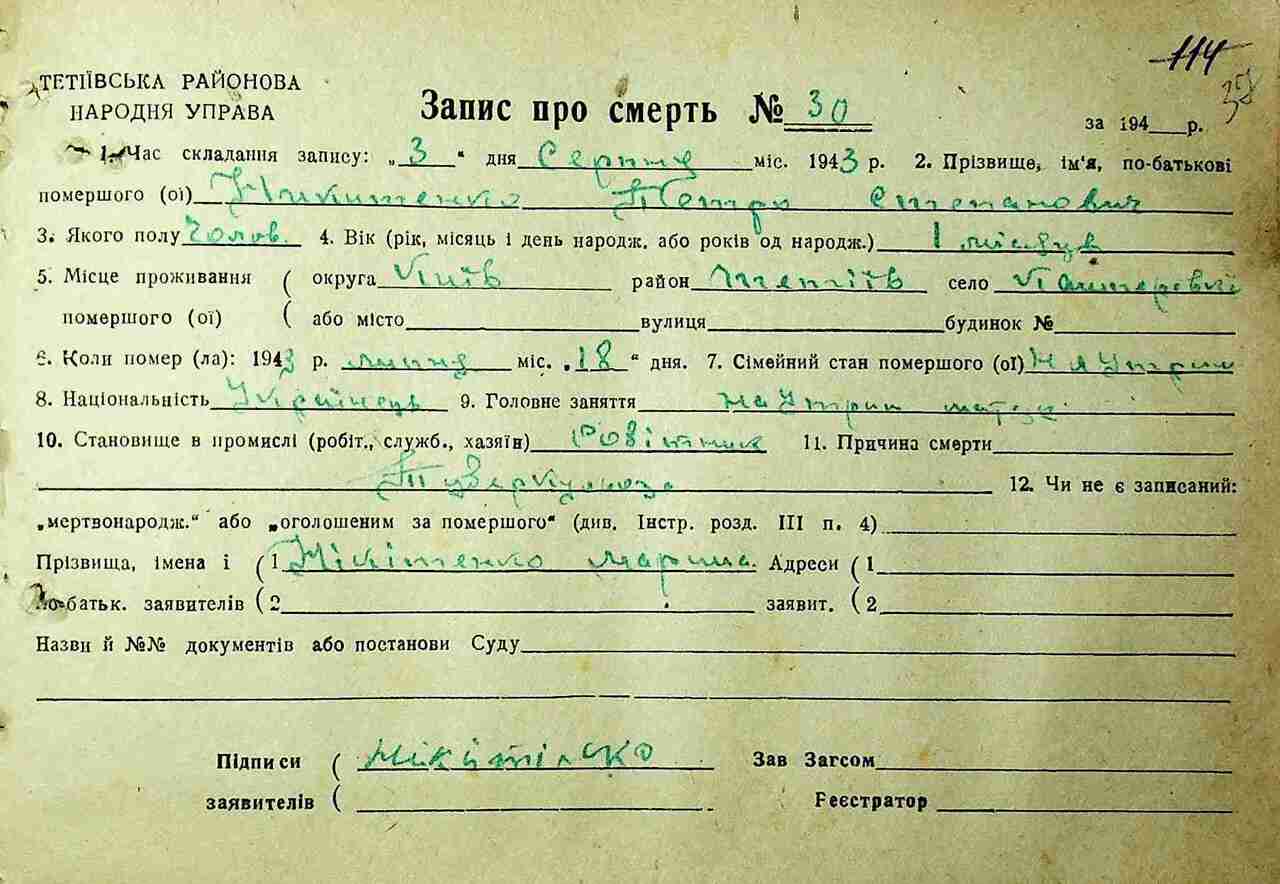 114
ТЕТІЇВСЬКА РАЙОНОВА
НАРОДНЯ УПРАВА
Запис про смерть № 30
за 194 р.
1. Час складання запису: „ 3 “ дня Серпня міс. 1943 р. 2. Прізвище, ім'я, по-батькові
помершого (ої) Никитенко Петро Степанович
3. Якого полу Чолов. 4. Вік (рік, місяць і день народж. або років од народж.) 1 місяць
5. Місце проживання ( округа Київ район Тетіїв село
помершого (ої) ( або місто вулиця будинок №
6. Коли помер (ла): 1943 р. липня міс. „ 18 “ дня. 7. Сімейний стан помершого (ої)
8. Національність Українець 9. Головне заняття на утрим
10. Становище в промислі (робіт., служб., хазяїн) Робітник 11. Причина смерти
Туберкульоза 12. Чи не є записаний:
„мертвонародж.“ або „оголошеним за помершого“ (див. Інстр. розд. III п. 4)
Прізвища, імена і (1 Нікітенко Марина. Адреси (1
По-батьк. заявителів (2 заявит. (2
Назви й №№ документів або постанови Суду
Підписи ( Зав Загсом
заявителів ( Реєстратор